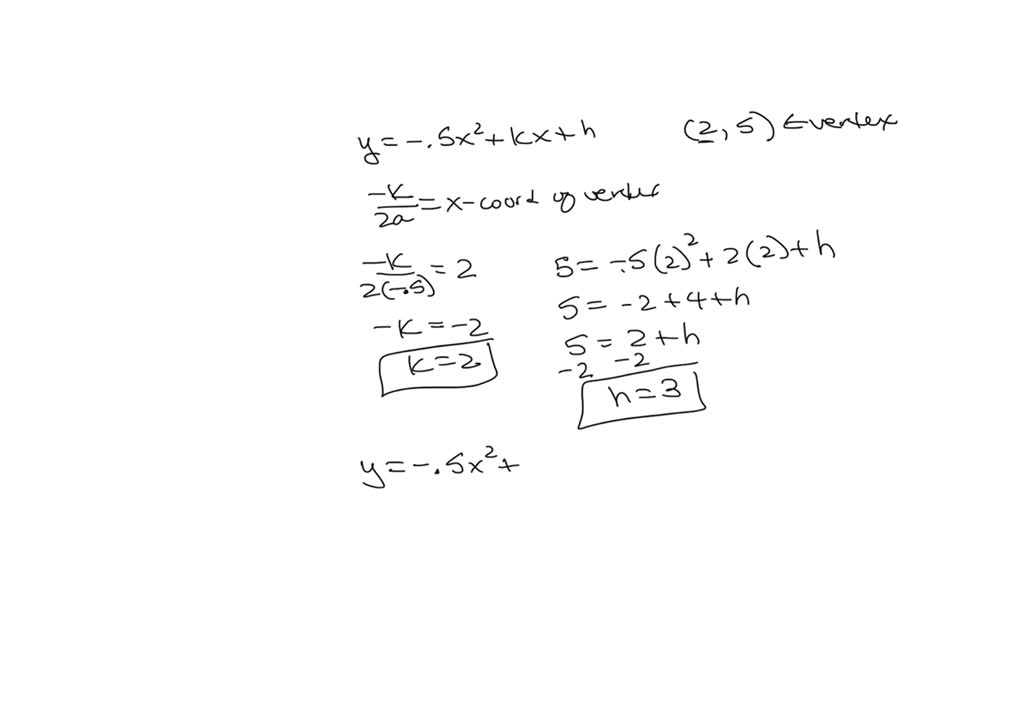 y = -.5x² + kx + h (2, 5) ← vertex
-k/2a = x-coord of vertex
-k/2(-.5) = 2
-k = -2
k = 2
5 = -.5(2)² + 2(2) + h
5 = -2 + 4 + h
5 = 2 + h
-2 -2
h = 3
y = -.5x² +